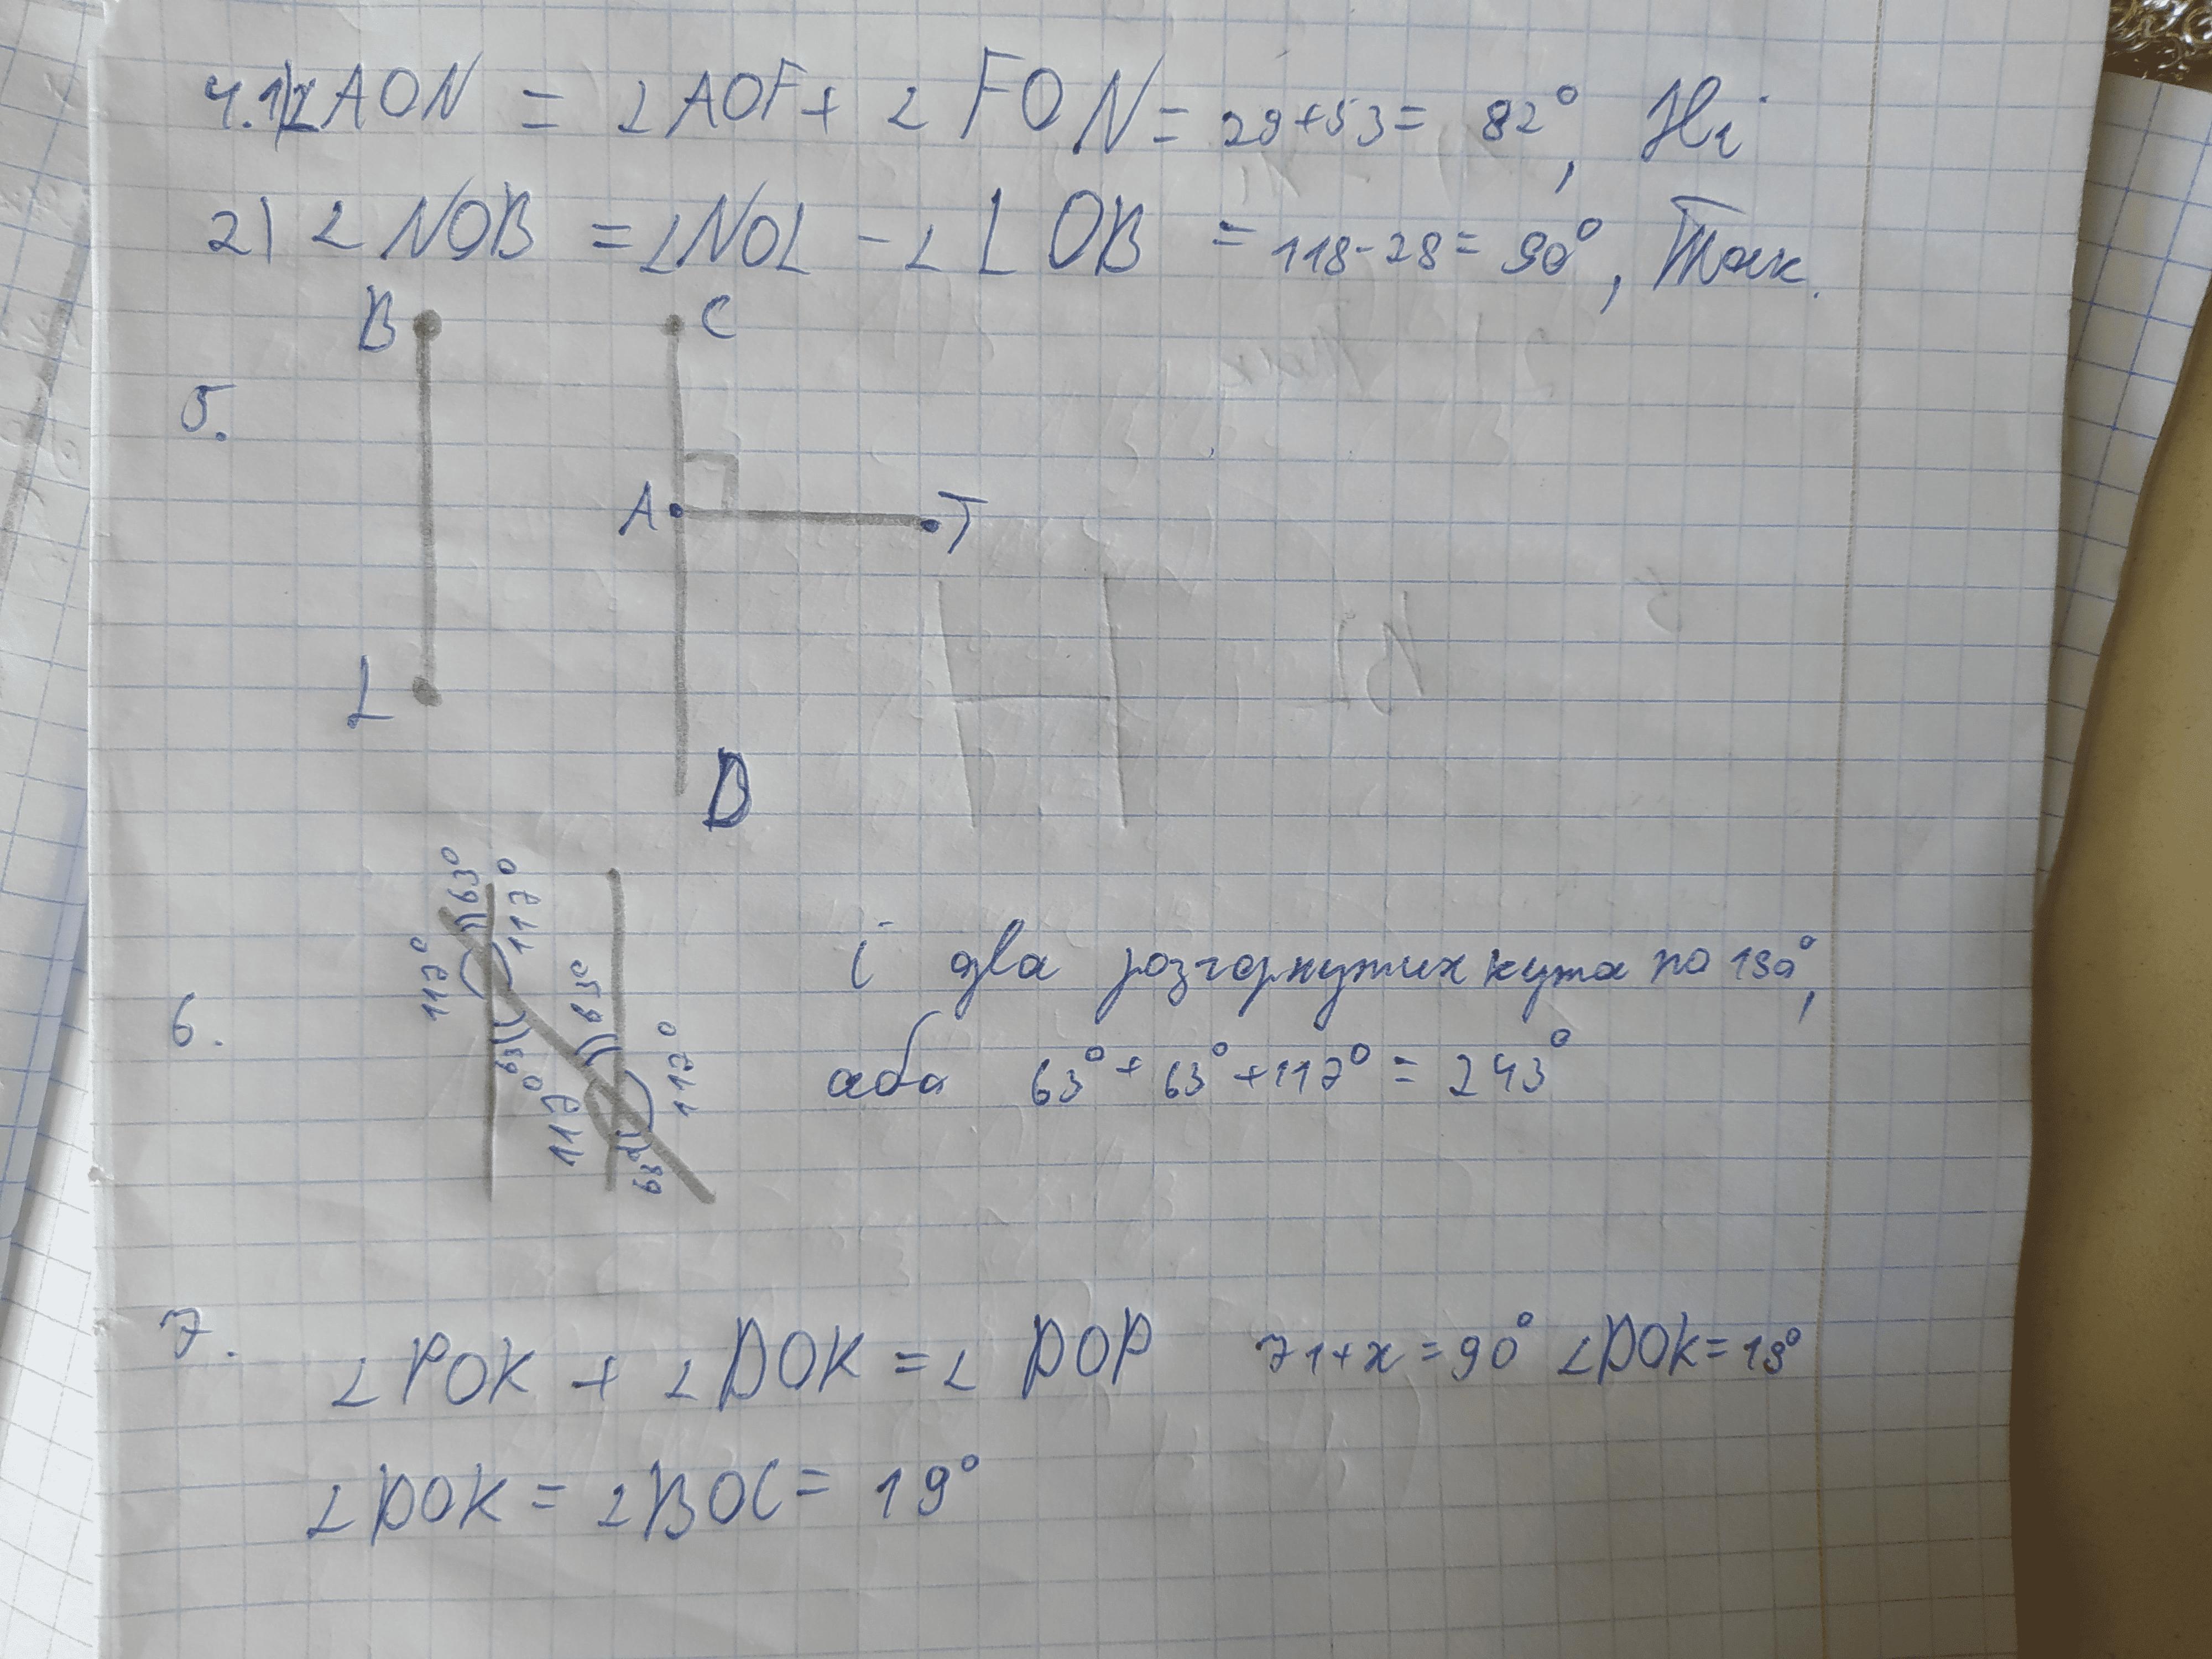 4.1) ∠AON = ∠AOF + ∠FON = 29+53 = 82°, Ні
2) ∠NOB = ∠NOL - ∠LOB = 118-28 = 90°, Так.
B C
5.
A T
L
D
63°
117° 117°
63°
6.
63° 117°
117°
63°
і два розгорнутих кута по 180°,
або 63° + 63° + 117° = 243°
7. ∠POK + ∠DOK = ∠DOP 71+x = 90° ∠DOK = 19°
∠DOK = ∠BOC = 19°